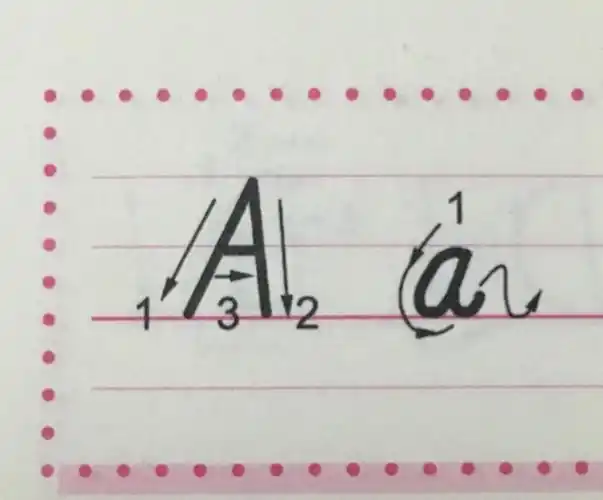 A a
1 3 2 1